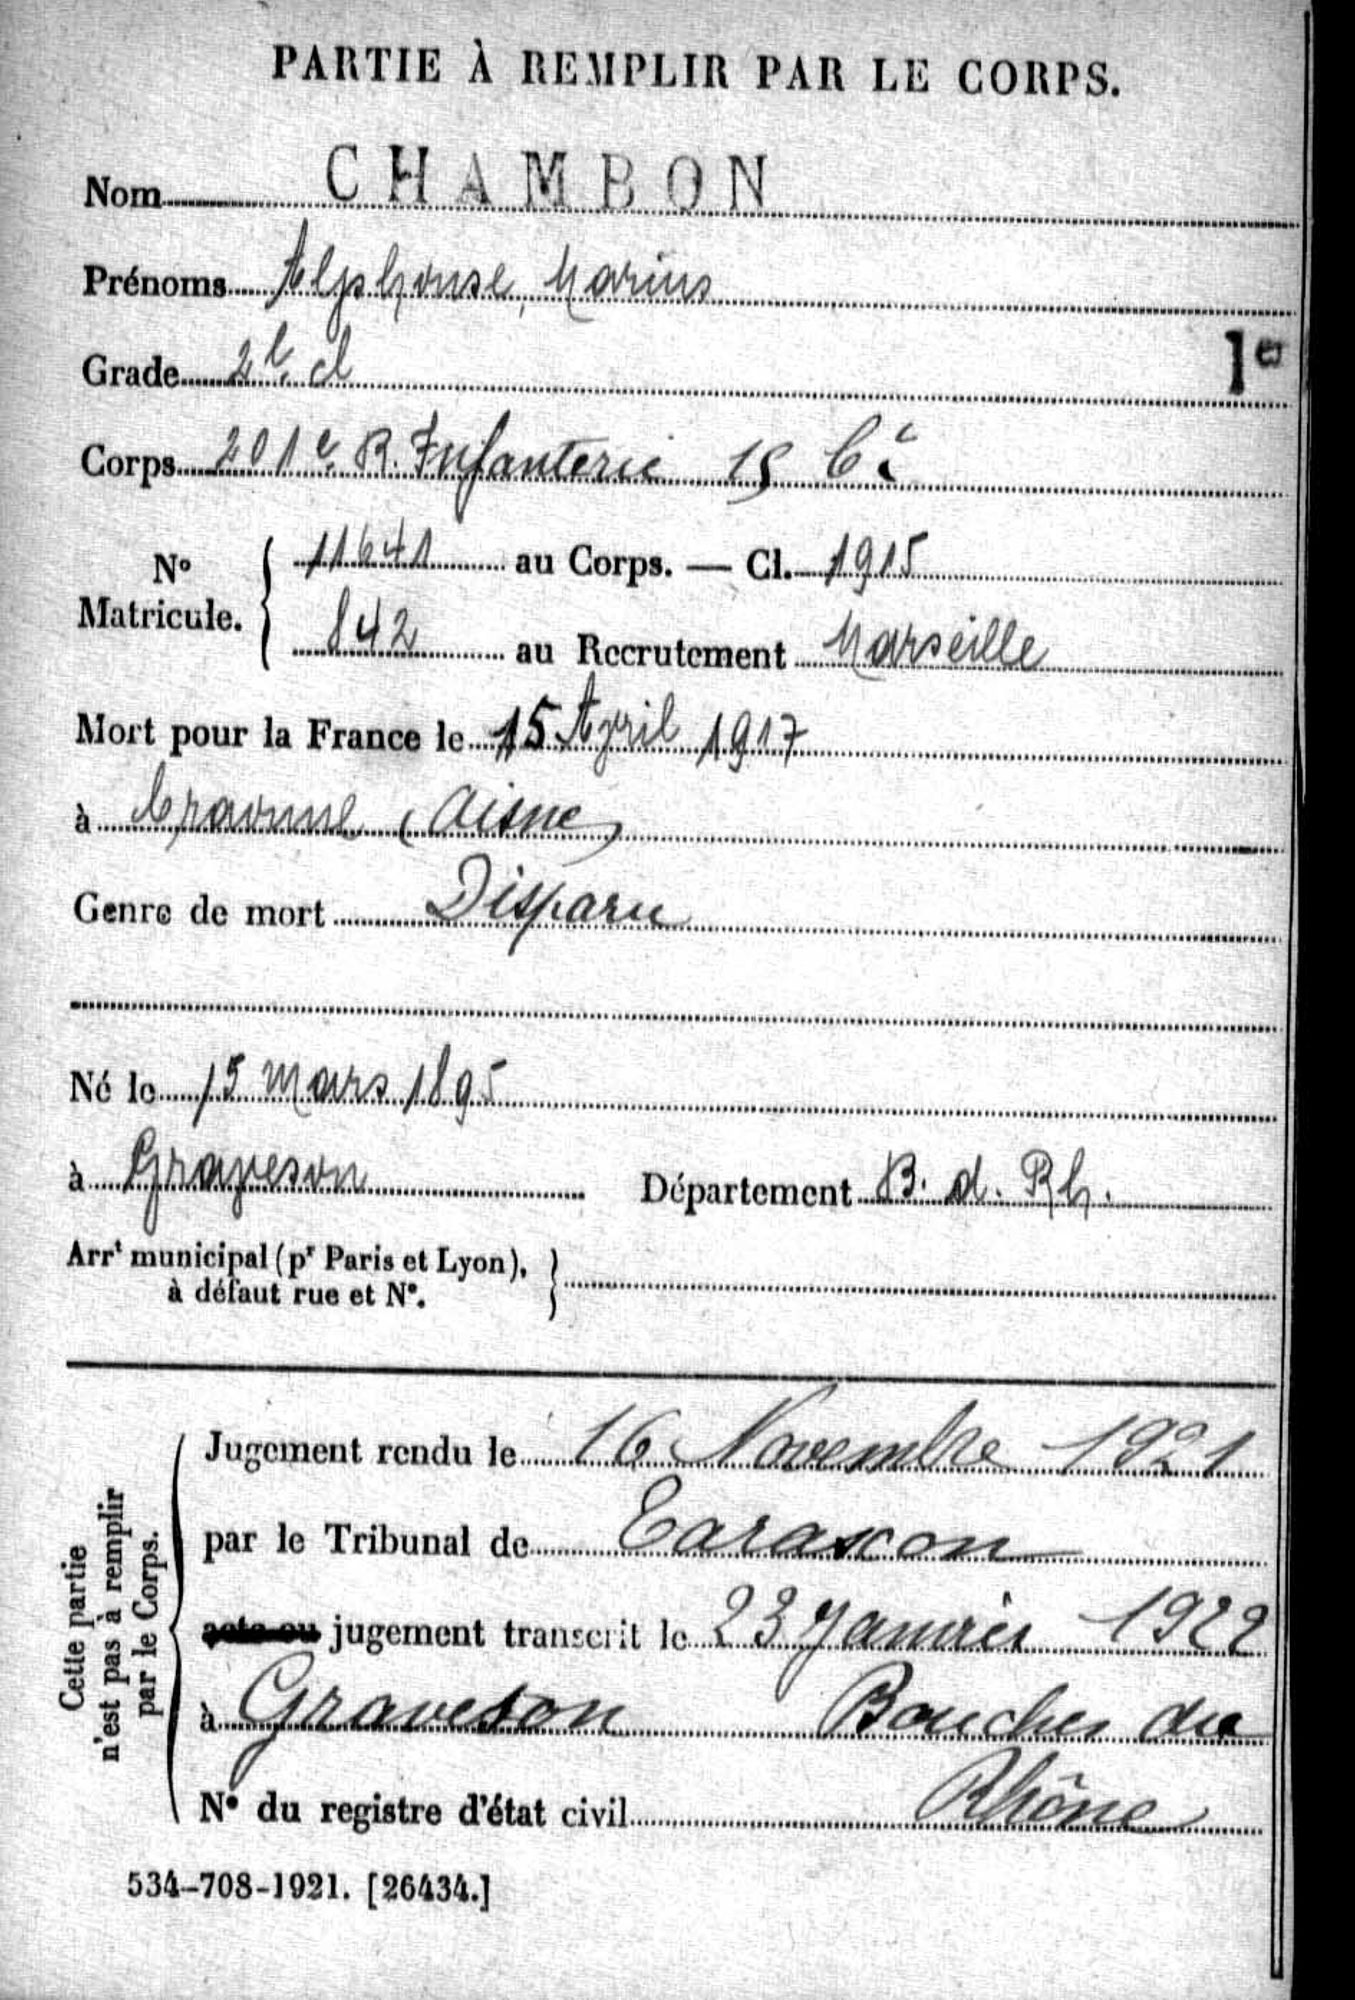 PARTIE À REMPLIR PAR LE CORPS.
Nom CHAMBON
Prénoms Alphonse, Marius
Grade 2e cl
1er
Corps 201e R. Infanterie 15 Cie
No Matricule. { 11641 au Corps. — Cl. 1915
842 au Recrutement Marseille
Mort pour la France le 15 Avril 1917
à Craonne (Aisne)
Genre de mort Disparu
Né le 15 mars 1895
à Graveson Département B. d. Rh.
Arrt municipal (pr Paris et Lyon),
à défaut rue et No.
Cette partie
n'est pas à remplir
par le Corps.
Jugement rendu le 16 Novembre 1921
par le Tribunal de Tarascon
acte ou jugement transcrit le 23 Janvier 1922
à Graveson Bouches du
No du registre d'état civil Rhône
534-708-1921. [26434.]